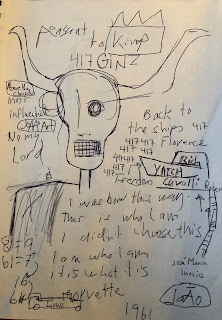 peasant
to King
417 GINZ
most
influential
No my
Lord
Back to
the ships 417
417 Florence
417 417
Rich
YATCH
Freedom Cavalli
I was born this way
This is who I am
I didn't choose this
I am who I am
it is what it is
corvette
Limo
José Maria
Inacio
João
1961